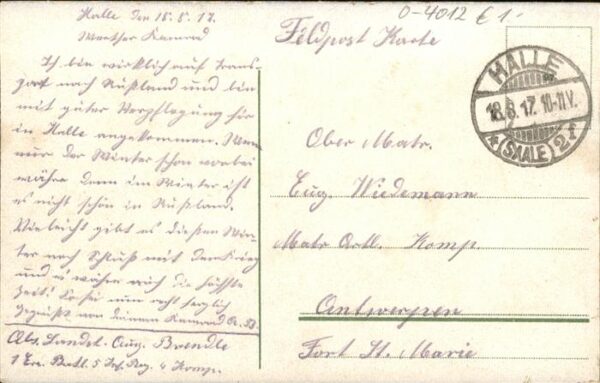 Halle den 18.8.17.
Werther Kamrad
Ich bin wirklich auf Trans-
port nach Rußland und bin
mit guter Verpflegung hir
in Halle angekommen. Wenn
nur der Winter schon vorbei
währe denn im Winter ist
es nicht schön in Rußland.
Vieleicht gibt es diesen Win-
ter noch Schluß mit dem Krieg
und es währe auch die höchste
Zeit! So sei nun recht herzlich
gegrüßt von deinem Kamrad A. B.
Abs. Landst. Aug. Brendle
1 Ers. Batl. 5 Inf. Reg. 4 Komp.
0-4012 € 1.-
Feldpost Karte
HALLE
18.8.17.10-11V.
* (SAALE) 2f
Ober Matr.
Eug. Wiedemann
Matr Artl. Komp.
Antwerpen
Fort St. Marie